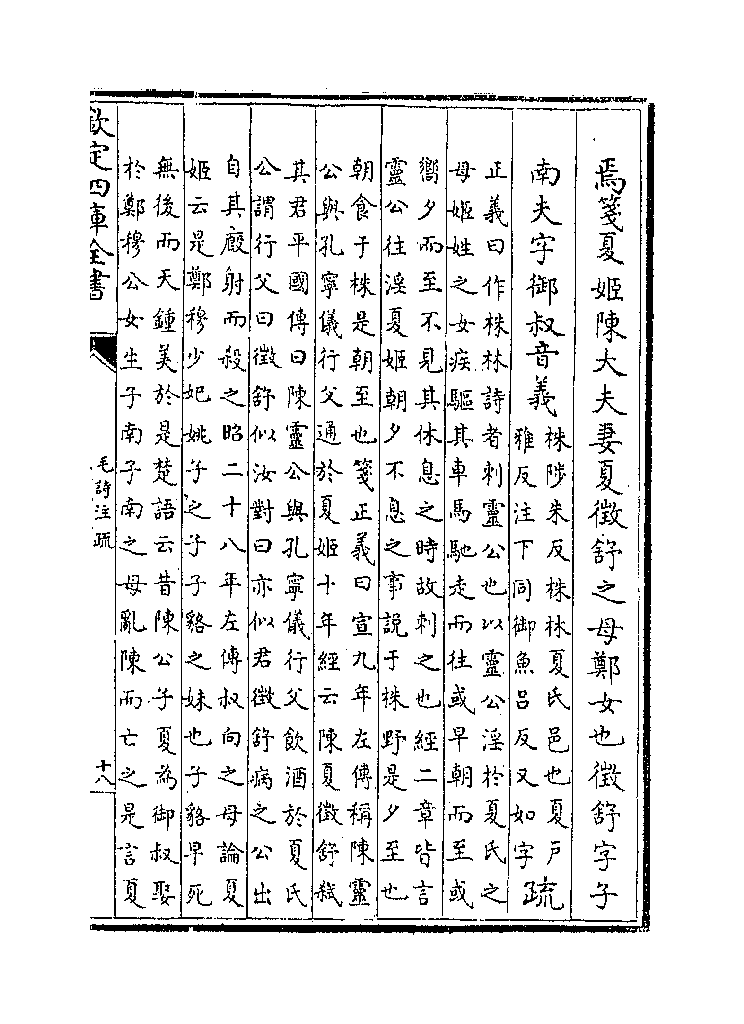 焉箋夏姬陳大夫妻夏徵舒之母鄭女也徵舒字子
南夫字御叔音義
株陟朱反株林夏氏邑也夏戶
雅反注下同御魚呂反又如字
疏
正義曰作株林詩者刺靈公也以靈公淫於夏氏之
母姬姓之女疾驅其車馬馳走而往或早朝而至或
嚮夕而至不見其休息之時故刺之也經二章皆言
靈公往淫夏姬朝夕不息之事說于株野是夕至也
朝食于株是朝至也箋正義曰宣九年左傳稱陳靈
公與孔寧儀行父通於夏姬十年經云陳夏徵舒弑
其君平國傳曰陳靈公與孔寧儀行父飲酒於夏氏
公謂行父曰徵舒似汝對曰亦似君徵舒病之公出
自其廄射而殺之昭二十八年左傳叔向之母論夏
姬云是鄭穆少妃姚子之子子貉之妹也子貉早死
無後而天鍾美於是楚語云昔陳公子夏為御叔娶
於鄭穆公女生子南子南之母亂陳而亡之是言夏
欽定四庫全書
毛詩注疏
十八